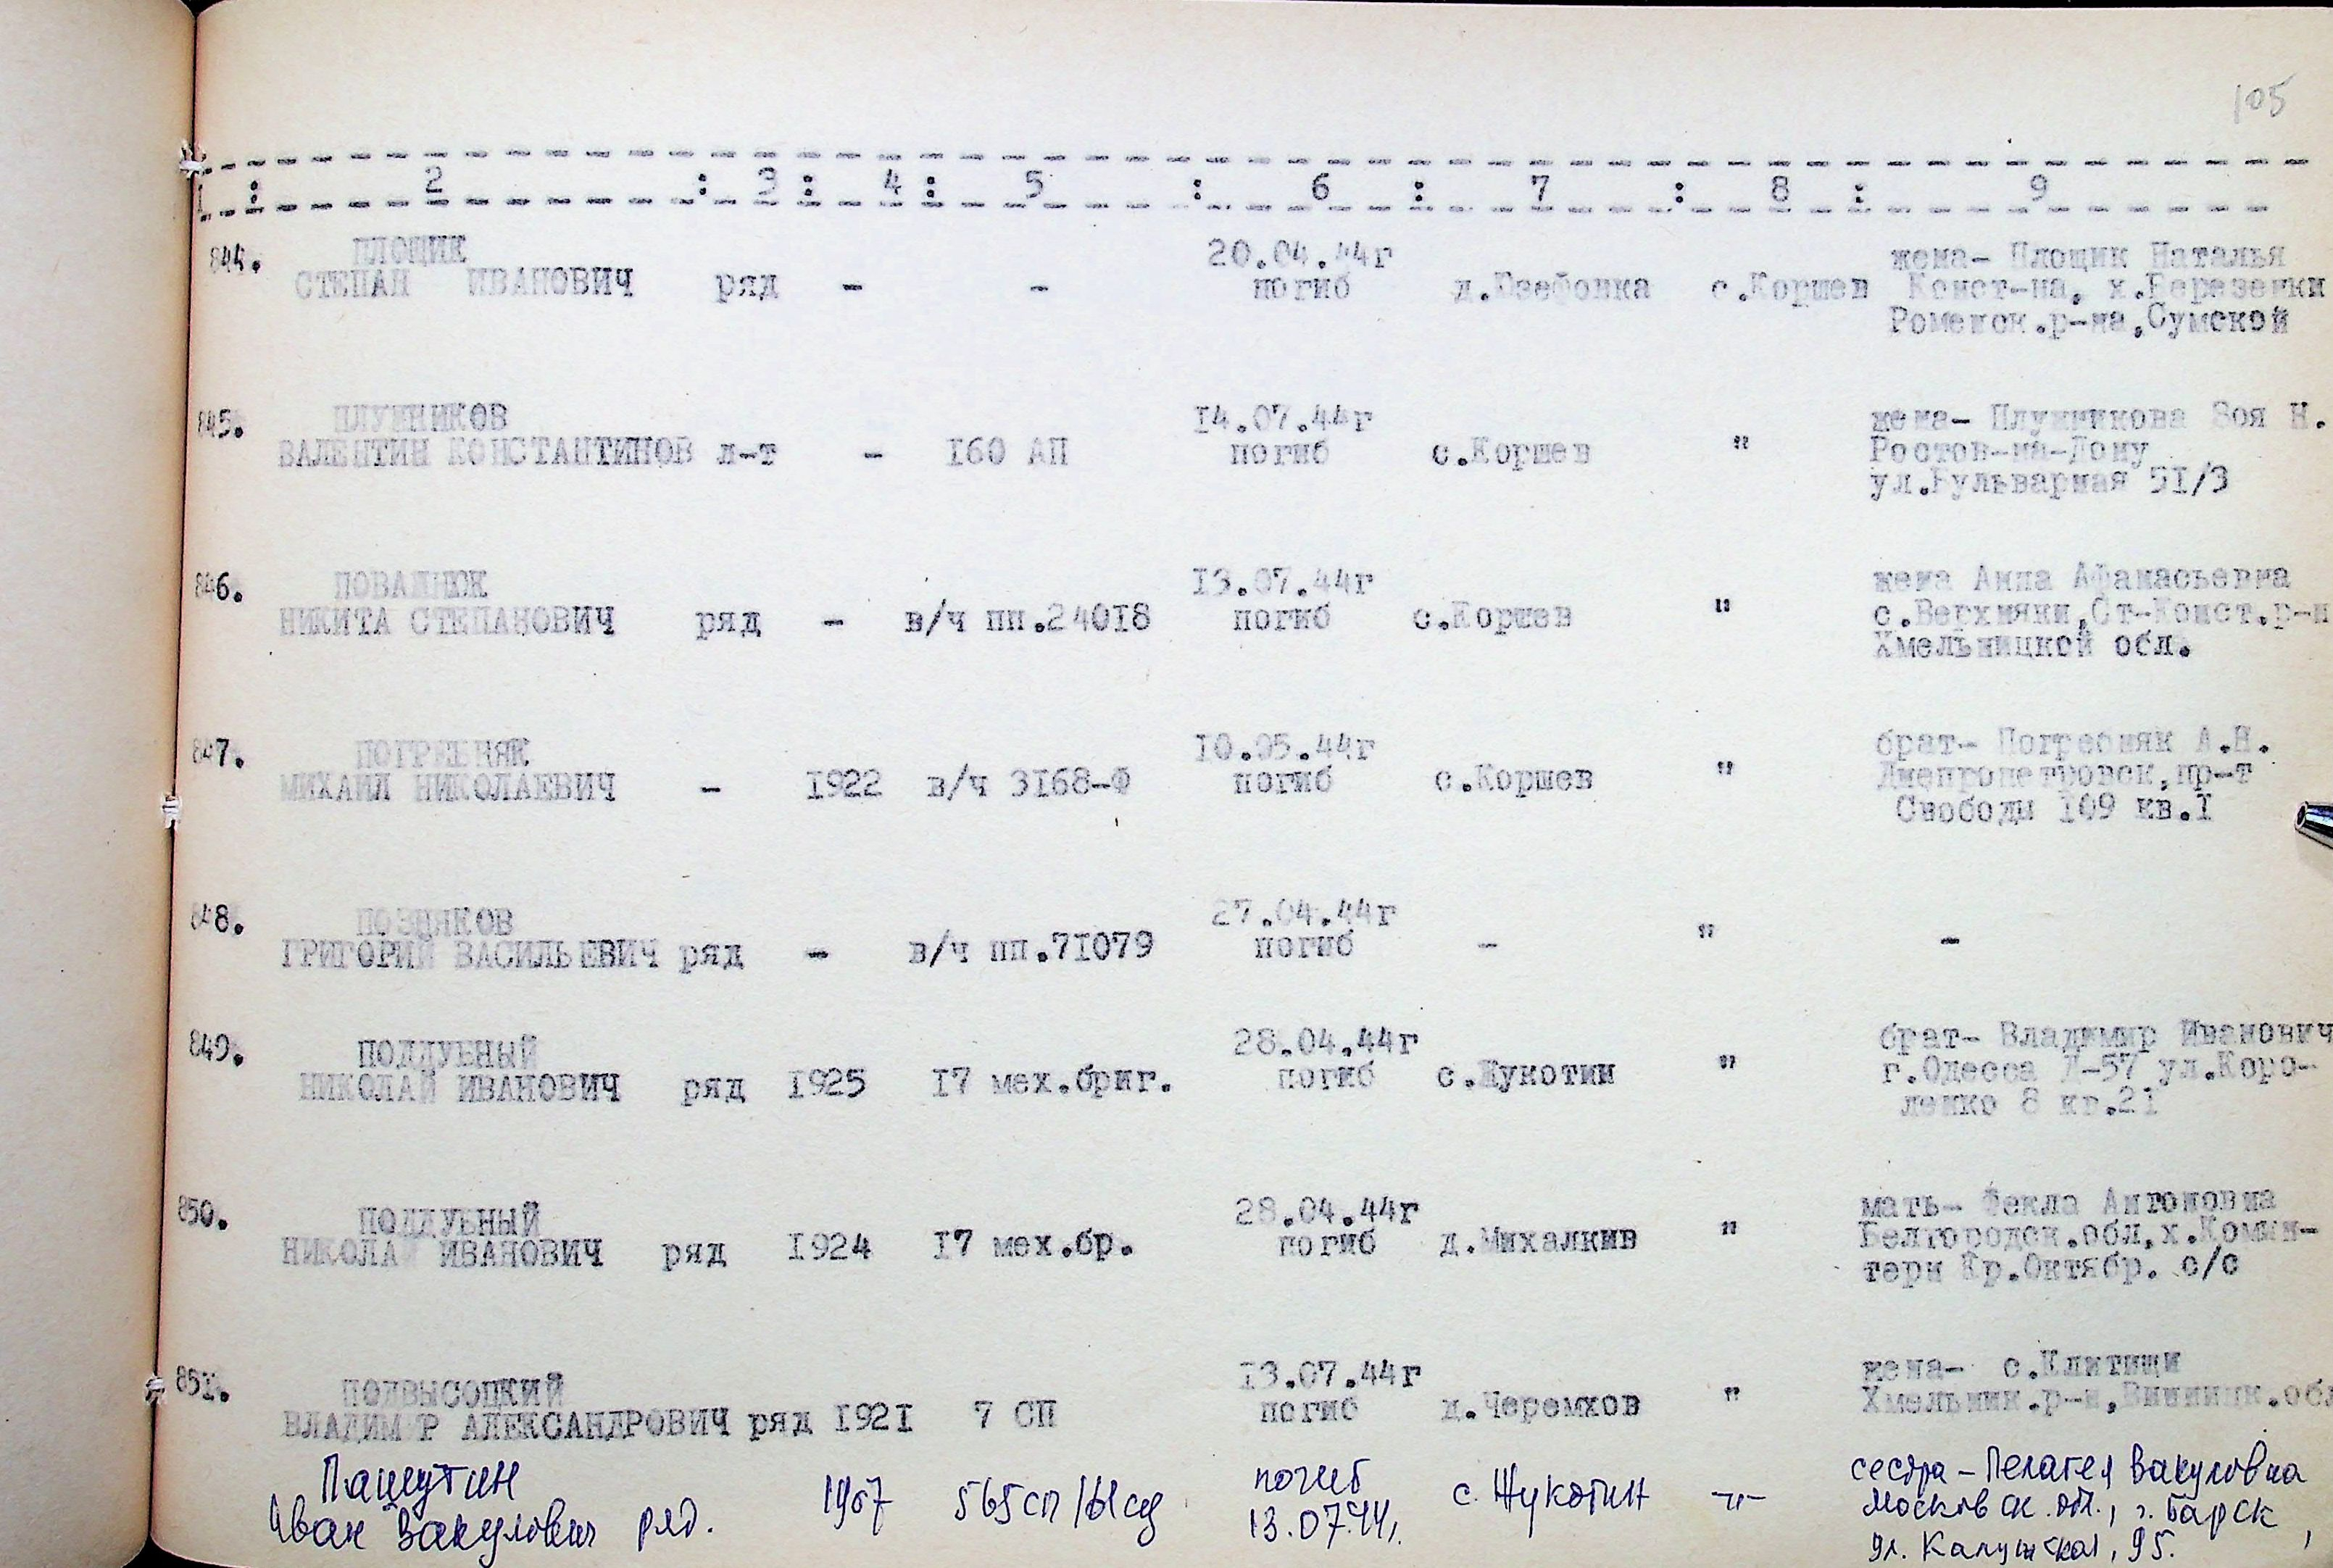 105
1 : 2 : 3 : 4 : 5 : 6 : 7 : 8 : 9
844. ПЛОЩИК 20.04.44г жена- Площик Наталья
СТЕПАН ИВАНОВИЧ ряд - - погиб д.Юзефовка с.Коршев Конст-на, х.Березенки
Роменск.р-на,Сумской
845. ПЛУЖНИКОВ 14.07.44г жена- Плужникова Зоя Н.
ВАЛЕНТИН КОНСТАНТИНОВ л-т - 160 АП погиб с.Коршев " Ростов-на-Дону
ул.Бульварная 51/3
846. 13.07.44г жена Анна Афанасьевна
НИКИТА СТЕПАНОВИЧ ряд - в/ч пп.24018 погиб с.Коршев " с.Верхняки,Ст-Конст.р-н
Хмельницкой обл.
847. ПОГРЕБНЯК 10.05.44г брат- Погребняк А.Н.
МИХАИЛ НИКОЛАЕВИЧ - 1922 в/ч 3168-Ф погиб с.Коршев " Днепропетровск,пр-т
Свободы 109 кв.1
848. ПОЗДНЯКОВ 27.04.44г
ГРИГОРИЙ ВАСИЛЬЕВИЧ ряд - в/ч пп.71079 погиб - " -
849. ПОДДУБНЫЙ 28.04.44г брат- Владимир Иванович
НИКОЛАЙ ИВАНОВИЧ ряд 1925 17 мех.бриг. погиб с.Жукотин " г.Одесса Д-57 ул.Коро-
ленко 8 кв.21
850. ПОДДУБНЫЙ 28.04.44г мать- Фекла Антоновна
НИКОЛА ИВАНОВИЧ ряд 1924 17 мех.бр. погиб д.Михалкив " Белгородск.обл,х.Комин-
терн Кр.Октябр. с/с
851. ПОДВЫСОЦКИЙ 13.07.44г жена- с.Клитищи
ВЛАДИМ Р АЛЕКСАНДРОВИЧ ряд 1921 7 СП погиб д.Черемхов " Хмельник.р-н,Винницк.обл
Пашутин погиб сестра - Пелагея Вакуловна
Иван Вакулович ряд. 1907 565сп/61сд 13.07.44г. с. Жукотин -"- Московск. обл., г. Барск,
ул. Калужская, 95.